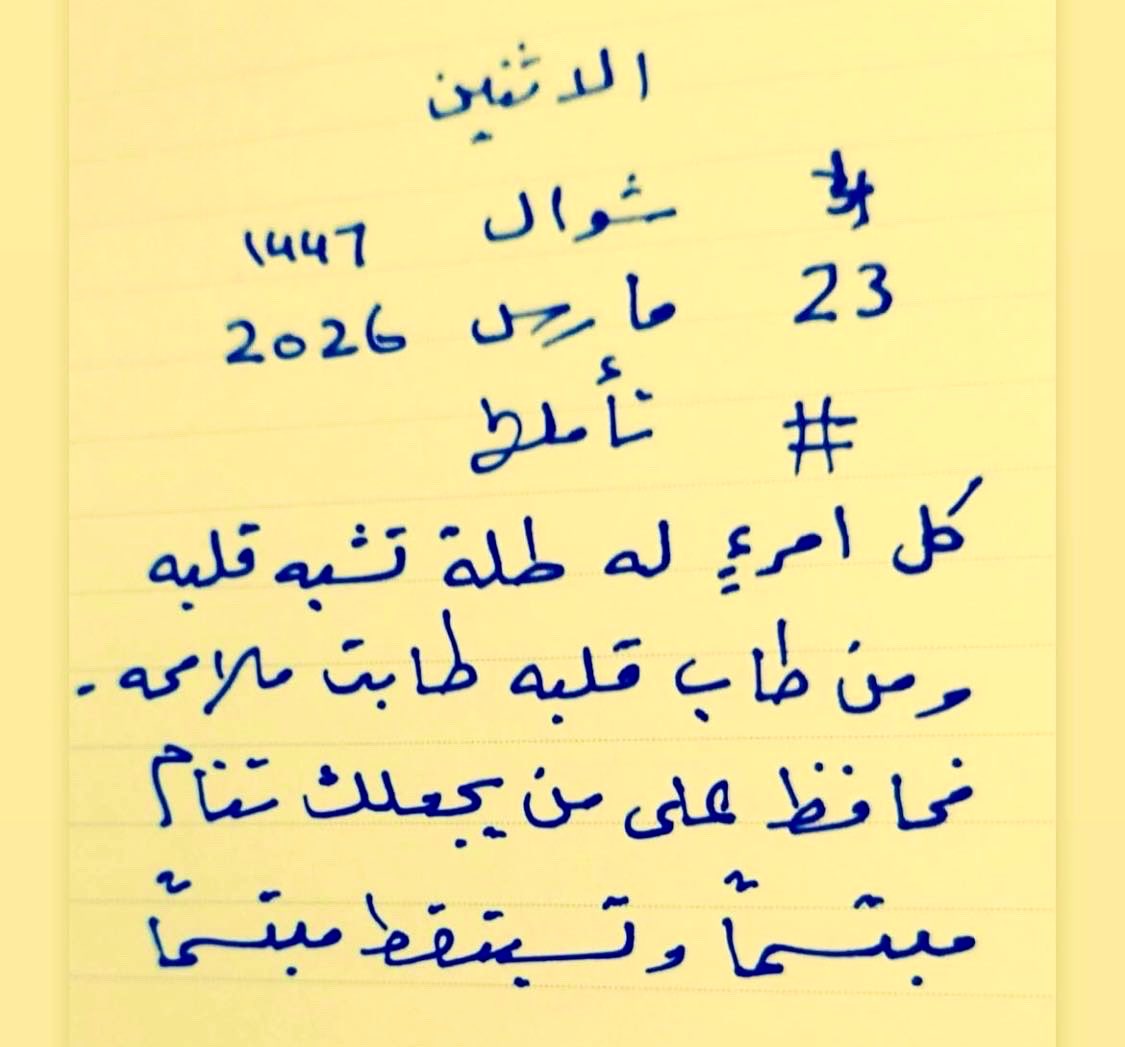 الاثنين
شوال 1447
23 مارس 2026
#
كل امرءٍ له طلة تشبه قلبه
ومن طاب قلبه طابت ملامحه.
فحافظ على من يجعلك تنام
مبتسماً وتستيقظ مبتسماً